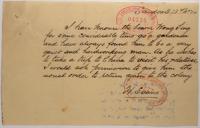 I have known the bearer Wong Sing
for some considerable time as a gardener
and have always found him to be a very
quiet and hardworking man. As he wishes
to take a trip to China to visit his relatives
I would ask permission to give him the
usual order to return again to the colony
W. Evans